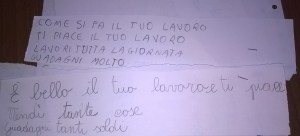 COME SI FA IL TUO LAVORO
TI PIACE IL TUO LAVORO
LAVORI TUTTA LA GIORNATA
GUADAGNI MOLTO
E bello il tuo lavoro e ti piace
Vendi tante cose
guadagni tanti soldi